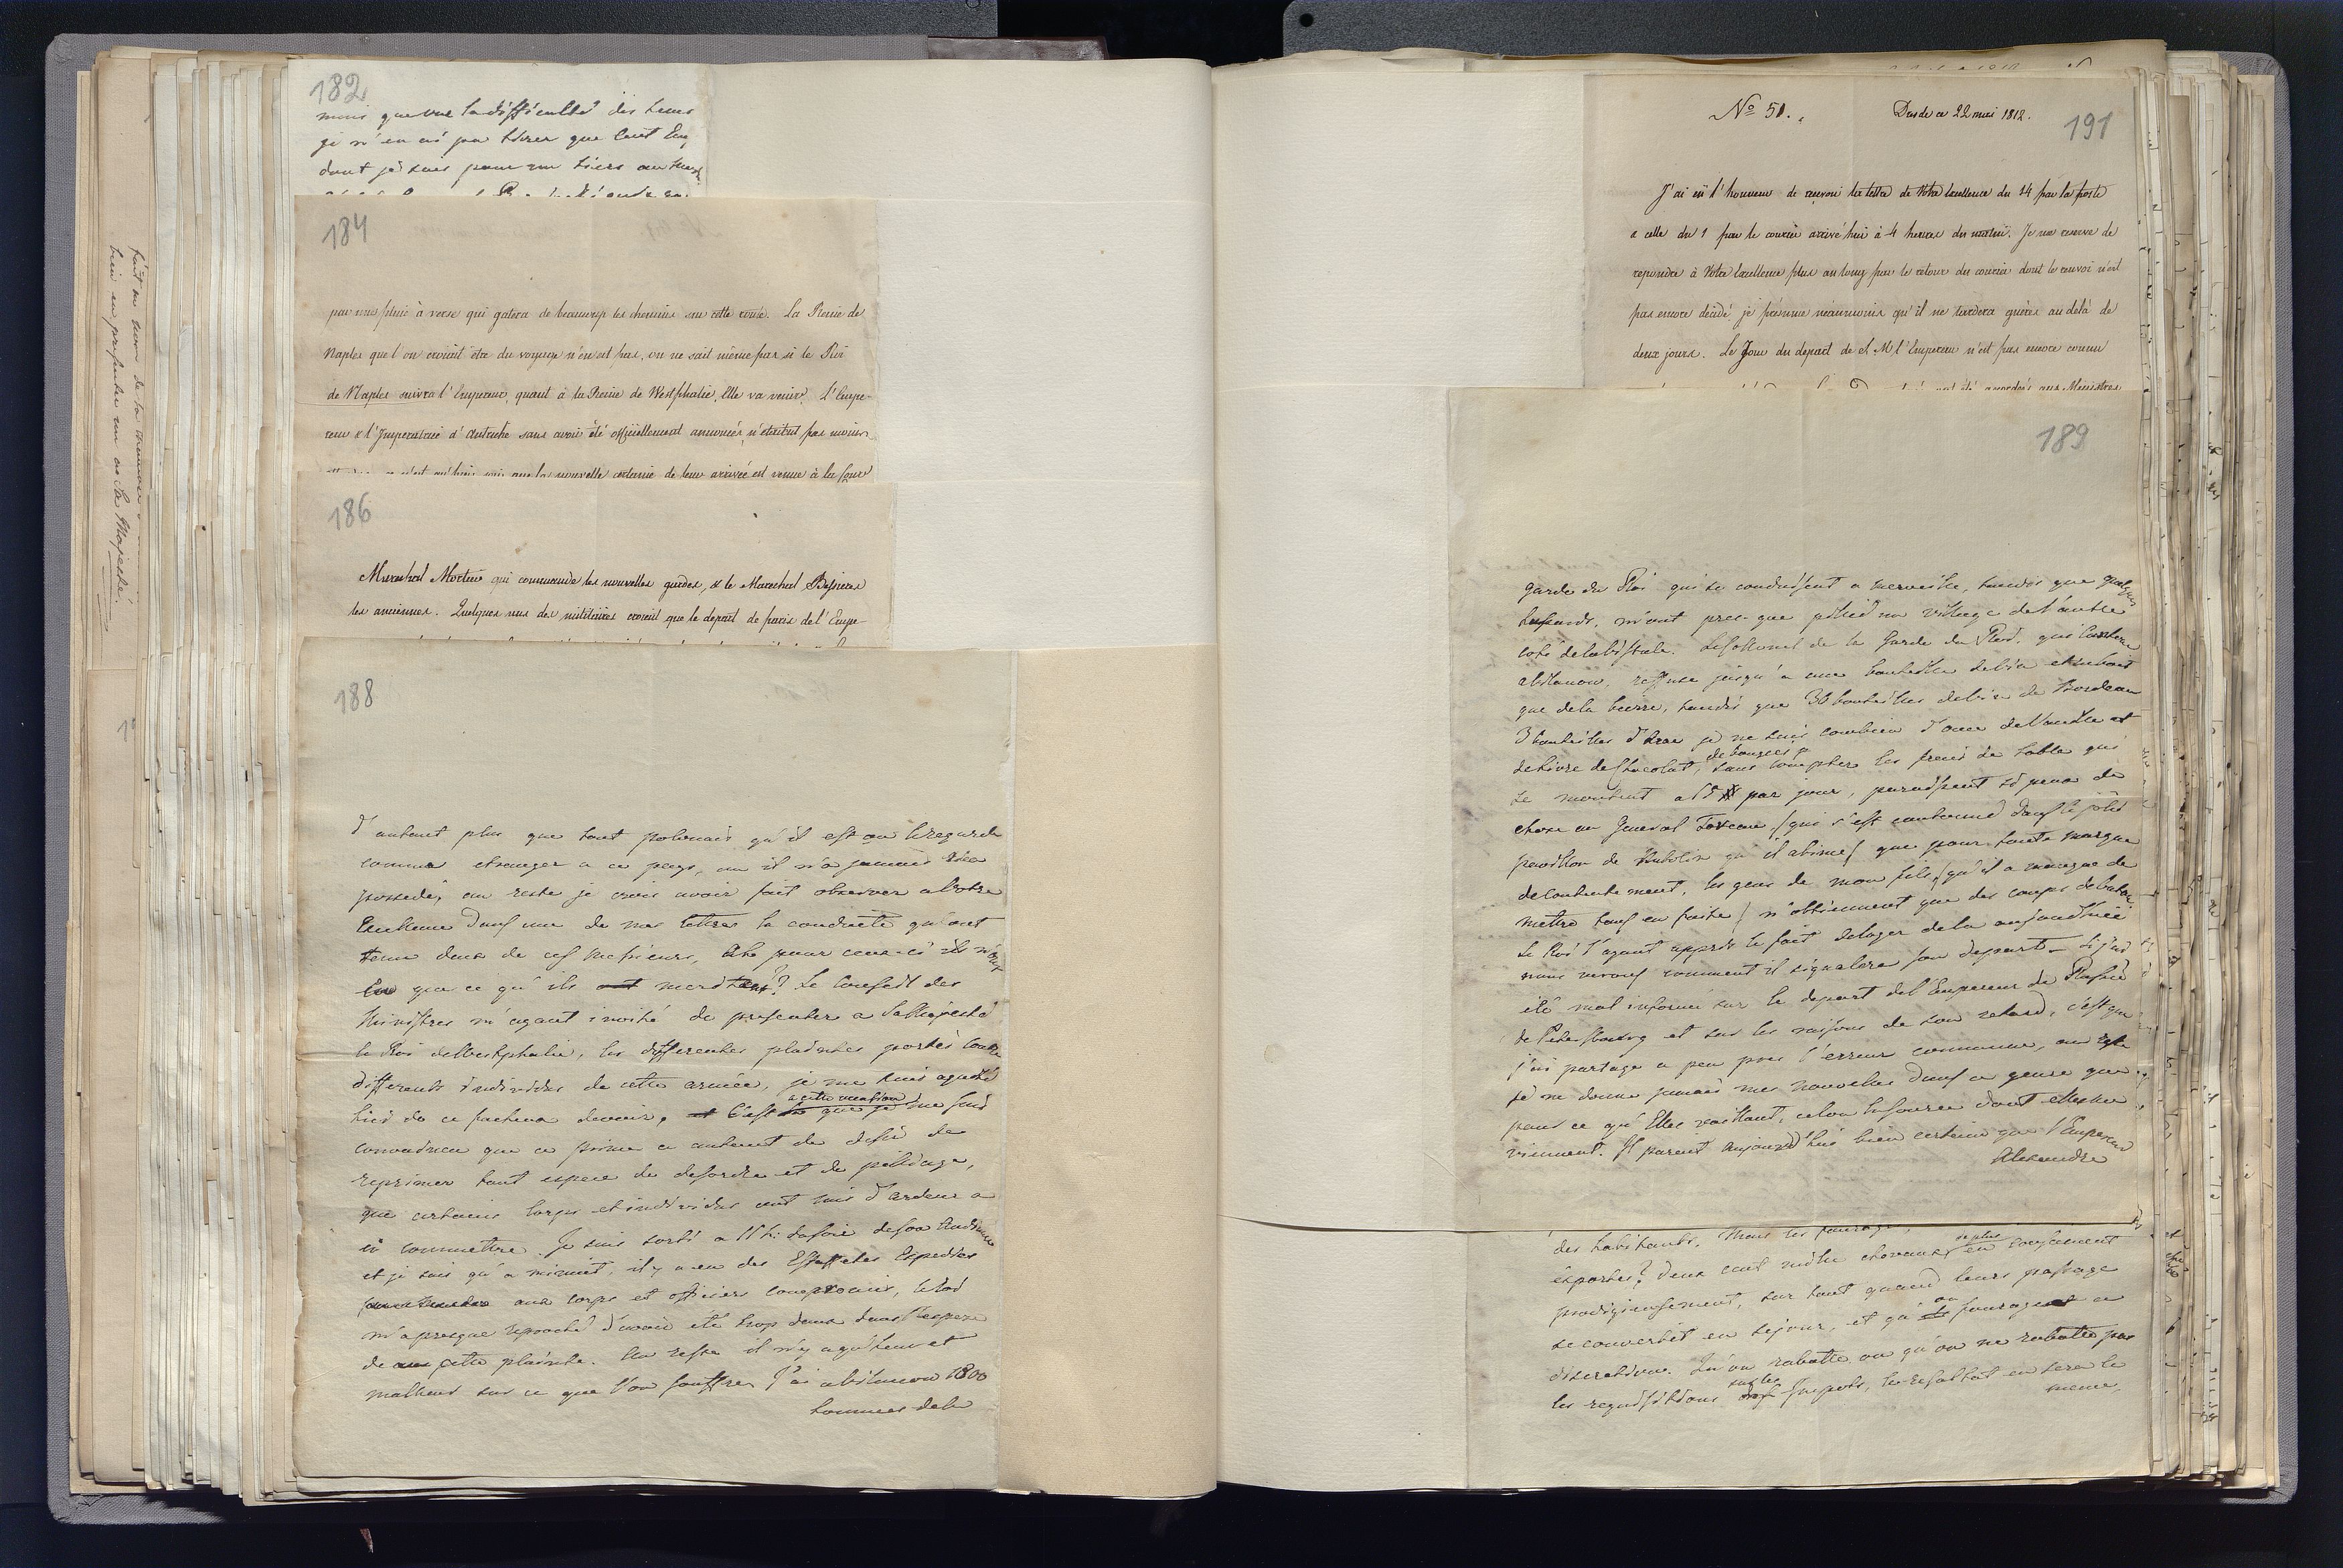 182
mais que vue la difficulté des tems
je n'en ai pu tirer que cent
dont je suis pour un tiers au
184
par une pluie à verse qui gatera de beaucoup les chemins sur cette route. La Reine de
Naples que l'on croiait être du voyage n'en est pas, on ne sait même pas si le Roi
de Naples suivra l'Empereur, quant à la Reine de Westphalie, Elle va venir. L'Empe-
reur & l'Imperatrice d'Autriche sans avoir été officiellement annoncés, n'étaient pas moins
que la nouvelle certaine de leur arrivée est venue à la Cour
186
Marechal Mortier qui commande les nouvelles gardes, & le Marechal Bessieres
les anciennes. Quelques uns des militaires croient que le depart de paris de l'Empe-
188
d'autant plus que tout polonais qu'il est on le regarde
comme etranger a ce pays, ou il n'a jamais rien
possedé, au reste je crois avoir fait observer a Votre
Excellence dans une de mes lettres la conduite qu'ont
tenu deux de ces Messieurs, pour ceux-ci ils n'ont
que ce qu'ils meritent? Le Conseil des
Ministres m'ayant invité de presenter a Sa Majesté
le Roi de Westphalie, les differentes plaintes portés contre
differents individus de cette armée, je me suis aquité
hier de ce facheux devoir, c'est a cette occasion que je me suis
convaincu que ce prince a autant de desir de
reprimer tout espece de desordre et de pillage,
que certains corps et individus ont mis d'ardeur a
en commettre. Je suis sorti a 11 h: du soir de son Audience
et je sais qu'a minuit, il y a eu des Estaffettes Expediées
aux corps et officiers compromis, le Roi
m'a presque reproché d'avoir été trop doux dans l'exposé
de cette plainte. Au reste il n'y a qu'heur et
malheur sur ce que l'on souffre, J'ai a Vilanow 1800
hommes de la
fait au nom de la
hier en presenter un a Sa Majesté.
Nº 50.
Dresde ce 22 mai 1812.
191
J'ai eü l'honneur de recevoir la lettre de Votre Excellence du 14 par la poste
& celle du 1 par le courier arrivé hier à 4 heures du matin. Je me reserve de
repondre à Votre Excellence plus au long par le retour du courier dont le renvoi n'est
pas encore décidé, je présume néanmoins qu'il ne tardera guères au delà de
deux jours. Le Jour du depart de S. M l'Empereur n'est pas encore connu
accordées aux Ministres
189
garde du Roi qui se conduisent a merveille, tandis que quelques
m'ont presque pillé un village de l'autre
coté de la Vistule. Le Colonel de la Garde du Roi, qui
a Vilanow, refuse jusqu'a une bouteille de vin et ne boit
que de la bierre, tandis que 30 bouteilles de vin de Bordeaux
3 bouteilles d'arac je ne sais combien d'once de Vanille et
de livre de Chocolat, de bougies, sans compter les frais de table qui
se montent a par jour, paraissent si peu de
chose au General (qui s'est cantonné dans le joli
pavillon de qu'il abime) que pour toute marque
de contentement, les gens de mon fils, (qu'il a menacé de
mettre tous en fuite) n'obtiennent que des coups de baton
Le Roi l'ayant appris le fait deloger de la aujourd'hui
nous verrons comment il signalera son depart. Si j'ai
été mal informé sur le depart de l'Empereur de Russie
de Petersbourg et sur les raisons de son retard, c'est que
j'ai partagé a peu près l'erreur commune, au reste
je ne donne jamais mes nouvelles dans ce genre que
pour ce qu'Elles vaillent, selon la source dont elles me
viennent. Il parait aujourd'hui bien certain que l'Empereur
Alexandre
des habitants. Mais les fourages,
exportés? deux cent mille chevaux en consomment
prodigieusement, sur tout quand leurs passage
se convertit en sejour, et qu'on fourage a
discretion. Qu'on rabatte ou qu'on ne rabatte pas
les requisitions sur les Impots, le resultat en sera le
meme,